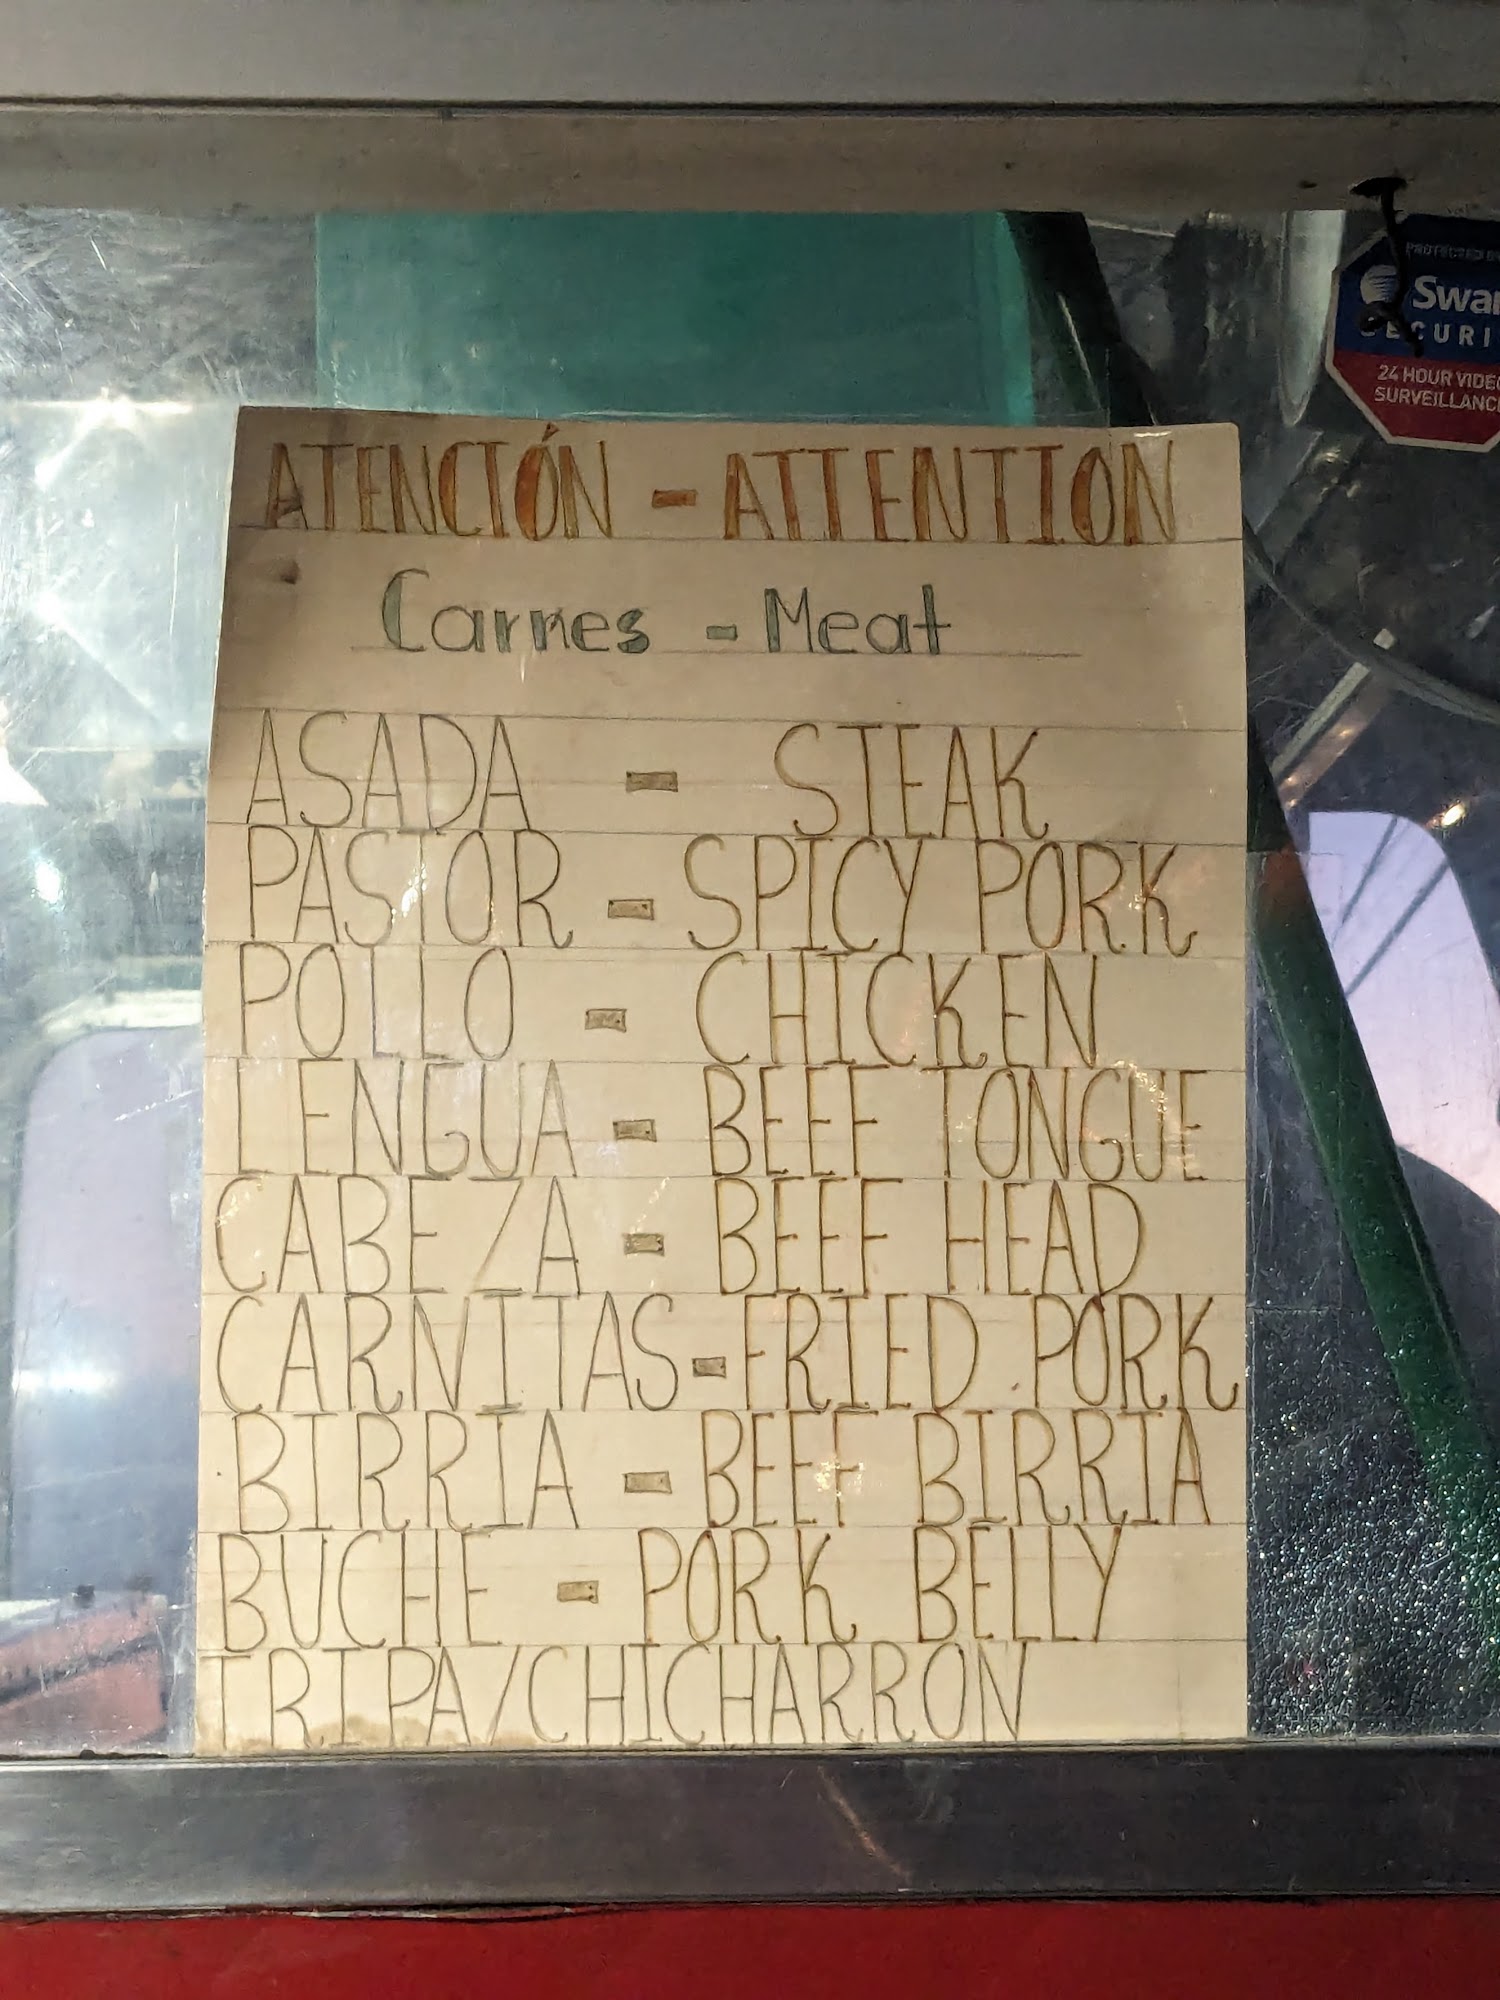 PROTECTED BY
Swan
SECURI
24 HOUR VIDEO
SURVEILLANC
ATENCIÓN - ATTENTION
Carnes - Meat
ASADA - STEAK
PASTOR - SPICY PORK
POLLO - CHICKEN
LENGUA - BEEF TONGUE
CABEZA - BEEF HEAD
CARNITAS - FRIED PORK
BIRRIA - BEEF BIRRIA
BUCHE - PORK BELLY
TRIPA/CHICHARRON